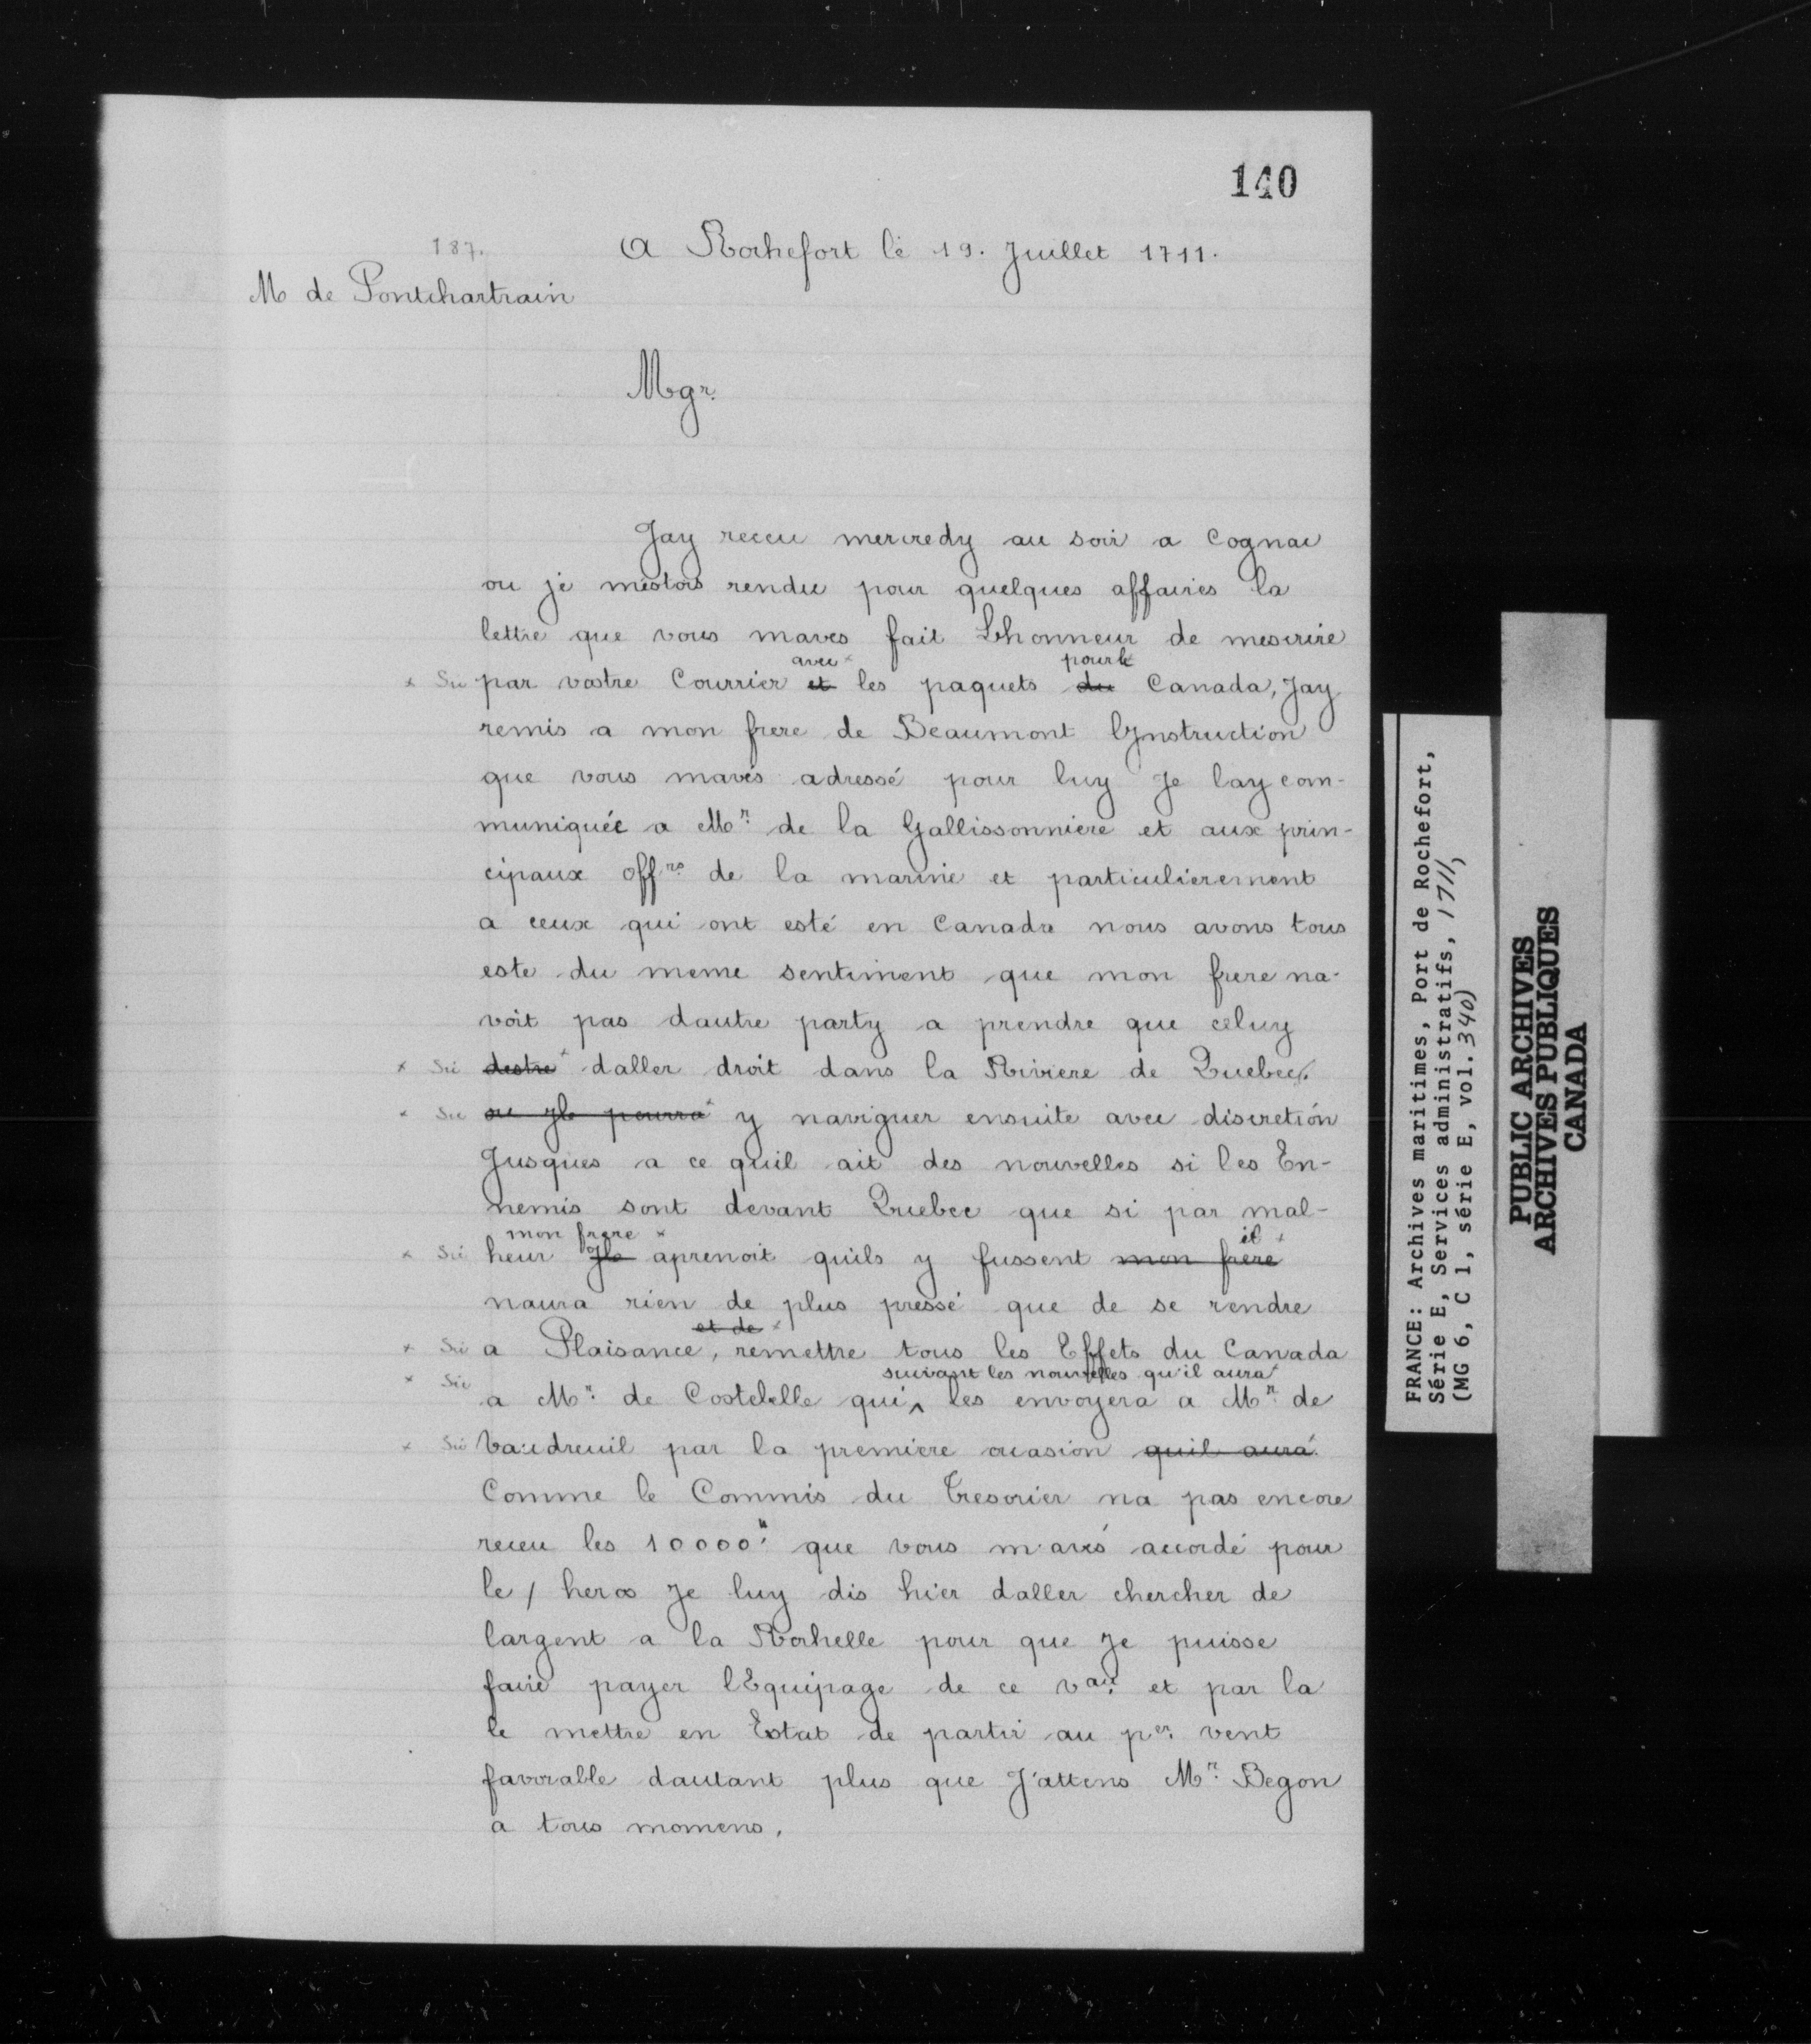 140
187. A Rochefort le 19. Juillet 1711.
M de Pontchartrain
Mgr.
Jay receu mercredy au soir a Cognac
ou je mestois rendu pour quelques affaires la
lettre que vous maves fait Lhonneur de mescrire
avec x pour le
x Sic par vostre Courrier et les paquets du Canada, Jay
remis a mon frere de Beaumont lynstruction
que vous mavés adressé pour luy Je lay com-
muniquée a Mr. de la Gallissonniere et aux prin-
cipaux offrs. de la marine et particulierement
a ceux qui ont esté en Canada nous avons tous
este du meme sentiment que mon frere na-
voit pas dautre party a prendre que celuy
x Sic destre x daller droit dans la Riviere de Quebec.
x Sic ou Jls pourra x y naviguer ensuite avec discretion
Jusques a ce quil ait des nouvelles si les En-
nemis sont devant Quebec que si par mal-
mon frere x il x
x Sic heur Jls aprenoit quils y fussent mon frere
naura rien de plus pressé que de se rendre
et de x
x Sic a Plaisance, remettre tous les Effets du Canada
suivant les nouvelles qu'il aura x
x Sic a Mr. de Costebelle qui ^ les envoyera a Mr. de
x Sic Vaudreuil par la premiere occasion quil aura.
Comme le Commis du Tresorier na pas encore
receu les 10000" que vous m'avés accordé pour
le / heros Je luy dis hier daller chercher de
largent a la Rochelle pour que Je puisse
faire payer lEquipage de ce vau. et par la
le mettre en Estat de partir au per. vent
favorable dautant plus que J'attens Mr. Begon
a tous momens.
FRANCE: Archives maritimes, Port de Rochefort,
Série E, Services administratifs, 1711,
(MG 6, C 1, série E, vol. 340)
PUBLIC ARCHIVES
ARCHIVES PUBLIQUES
CANADA